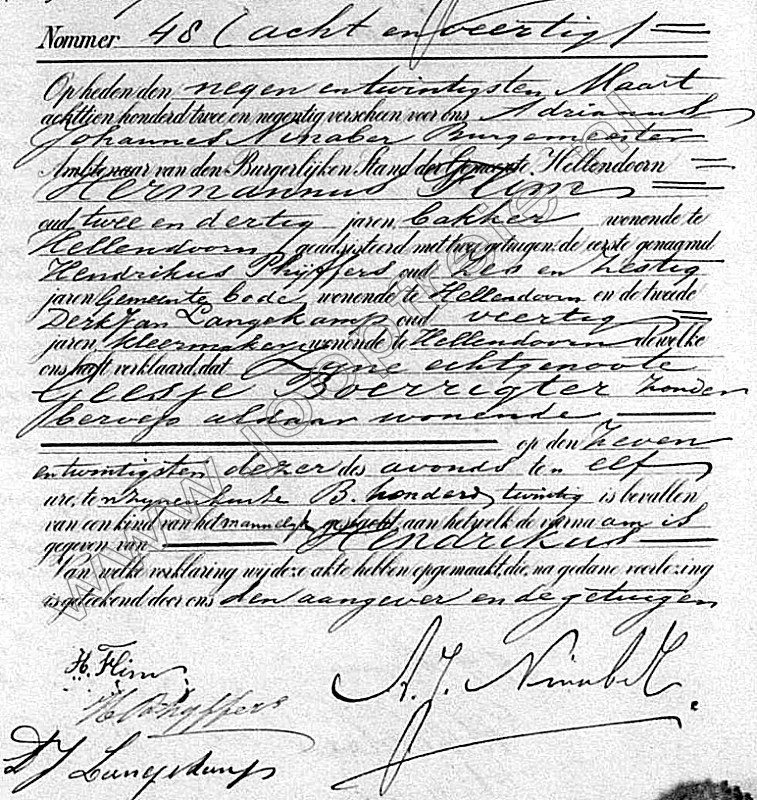 Nommer 48 (acht en veertig)
Op heden den negen en twintigsten Maart
achttien honderd twee en negentig verscheen voor ons Adrianus
Johannes Ninaber Burgemeester
Ambtenaar van den Burgerlijken Stand der Gemeente Hellendoorn
Hermannus Flim
oud twee en dertig jaren, bakker wonende te
Hellendoorn geadsisteerd met twee getuigen, de eerste genaamd
Hendrikus Phijffers oud zes en zestig
jaren Gemeente bode wonende te Hellendoorn en de tweede
Derk Jan Langekamp oud veertig
jaren, kleermaker wonende te Hellendoorn Dewelke
ons heeft verklaard, dat Zijne echtgenoote
Geesje Boerrigter zonder
beroep aldaar wonende
op den Zeven
en twintigsten dezer des avonds ten elf
ure, te zijnen huize B. honderd twintig is bevallen
van een kind van het mannelijk geslacht, aan hetwelk de vornaam is
gegeven van Hendrikus
Van welke verklaring wij deze akte hebben opgemaakt, die, na gedane voorlezing
is geteekend door ons den aangever en de getuigen
H. Flim
A. J. Ninaber
H Phyffers
D J Langekamp